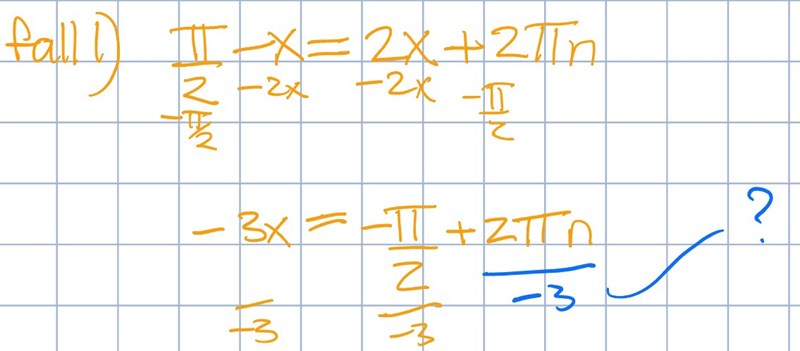 fall 1) π/2 - x = 2x + 2πn
-π/2 -2x -2x -π/2
-3x = -π/2 + 2πn ?
/-3 /-3 /-3